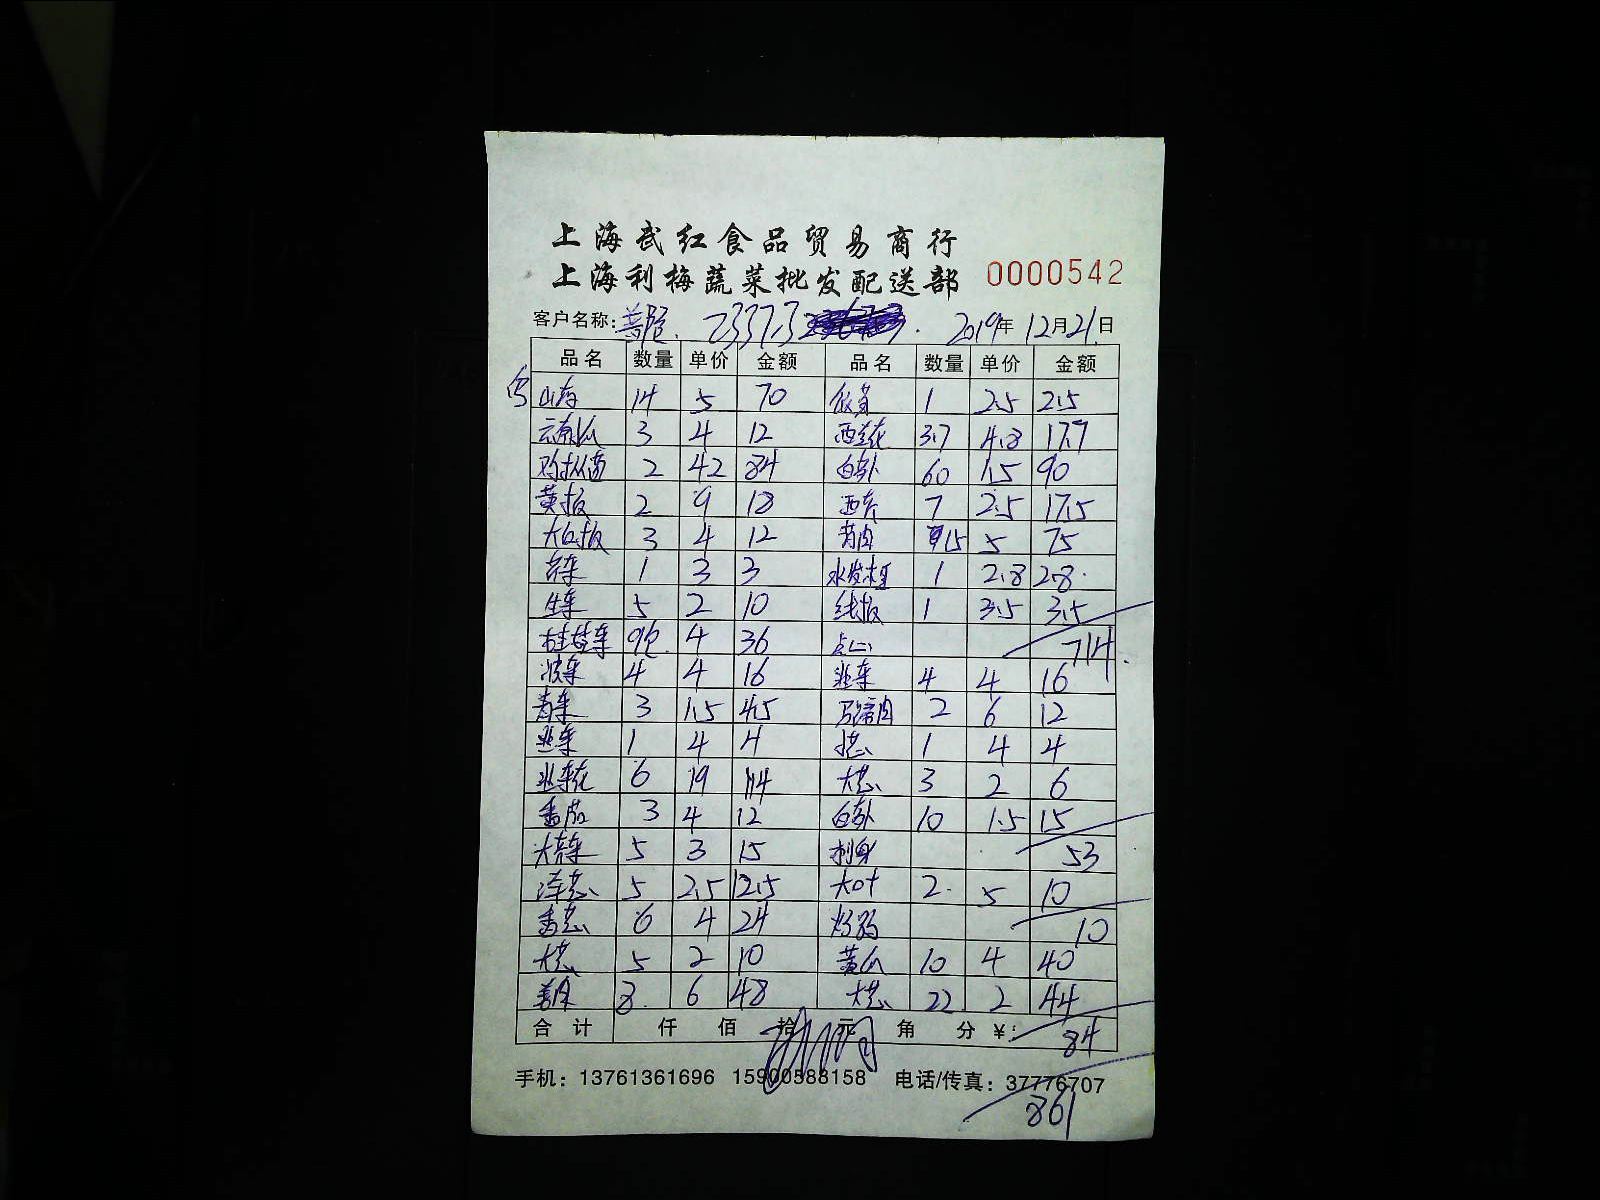 上海武红食品贸易商行
上海利梅蔬菜批发配送部 0000542
客户名称: 7337.3 2019年12月21日
品名 数量 单价 金额 品名 数量 单价 金额
山药 14 5 70 1 2.5 2.5
云南瓜 3 4 12 西兰花 3.7 4.8 17.7
2 42 84 白卜 60 1.5 90
黄板 2 9 18 西芹 7 2.5 17.5
大红板 3 4 12 肉 15 5 75
1 3 3 水发木耳 1 2.8 2.8
生菜 5 2 10 线板 1 3.5 3.5
9包 4 36 点心 714
菠菜 4 4 16 韭菜 4 4 16
青菜 3 1.5 4.5 马蹄肉 2 6 12
韭菜 1 4 4 1 4 4
韭菜花 6 19 114 大葱 3 2 6
番茄 3 4 12 白卜 10 1.5 15
大 5 3 15 刺身 53
洋葱 5 2.5 12.5 大叶 2 5 10
香葱 6 4 24 10
大葱 5 2 10 黄瓜 10 4 40
8 6 48 大葱 22 2 44
合计 仟 佰 拾 元 角 分 ¥: 84
手机: 13761361696 15900588158 电话/传真: 37776707
861